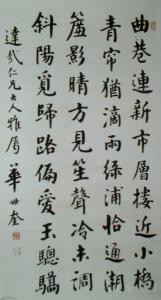 曲巷連新市層樓近小橋
青帘猶滴雨綠浦恰通潮
簾影晴方見笙聲冷未調
斜陽覓歸路偏愛玉驄驕
達哉仁兄大人雅屬 華世奎